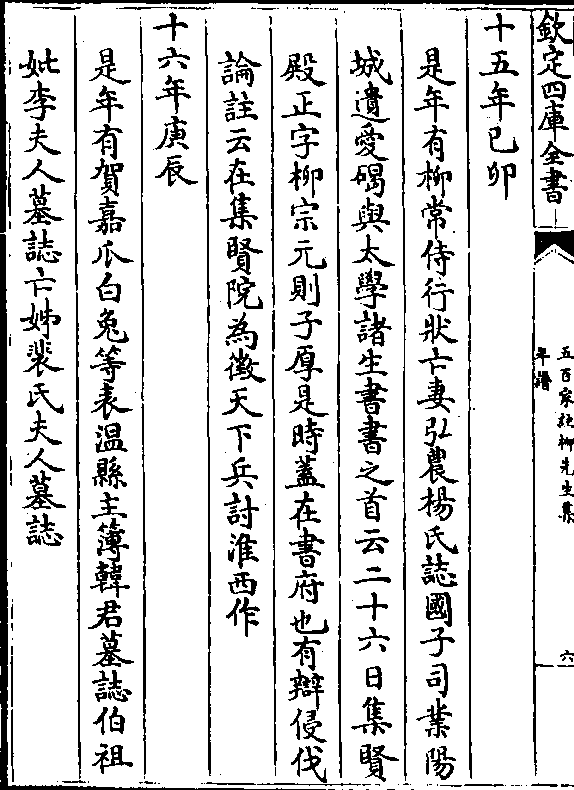 欽定四庫全書
五百家註柳先生集
年譜
六
十五年己卯
是年有柳常侍行狀亡妻弘農楊氏誌國子司業陽
城遺愛碣與太學諸生書書之首云二十六日集賢
殿正字柳宗元則子厚是時蓋在書府也有辯侵伐
論註云在集賢院為徵天下兵討淮西作
十六年庚辰
是年有賀嘉瓜白兔等表温縣主簿韓君墓誌伯祖
妣李夫人墓誌亡姊裴氏夫人墓誌